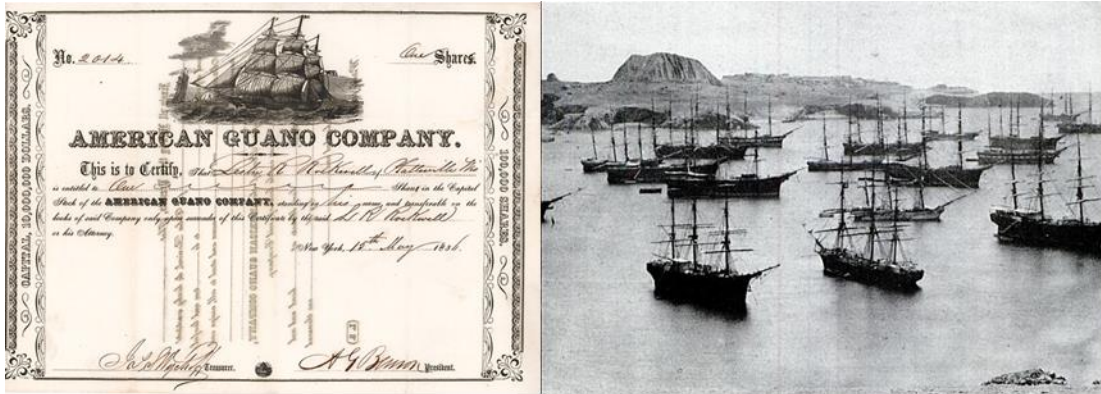 No. 2014 One Shares.
AMERICAN GUANO COMPANY.
This is to Certify, that R Rockwell of Platteville Wis
is entitled to One Share in the Capital
Stock of the AMERICAN GUANO COMPANY, standing in his name, and transferable on the
books of said Company only upon surrender of this Certificate by the said L R Rockwell
or his Attorney.
New York, 15th May 1856.
Treasurer. A G Benson President.
CAPITAL, 10,000,000 DOLLARS.
100,000 SHARES.